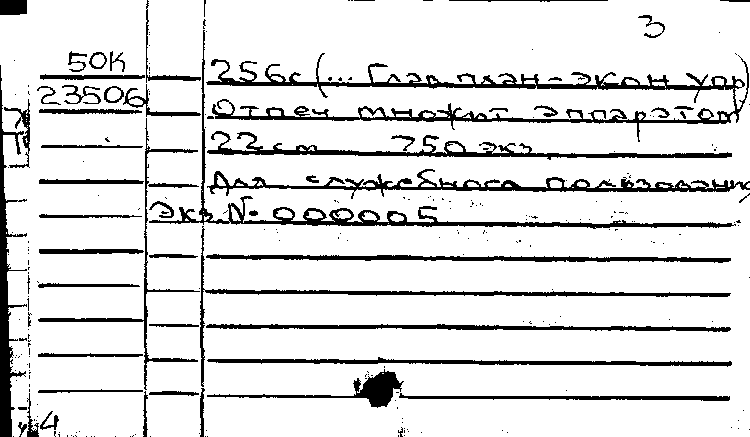 3
50К 256с (... Глав план-экон упр)
23506 Отпеч множит аппаратом
22см 750 экз
Для служебного пользования
Экз. № 000005
4